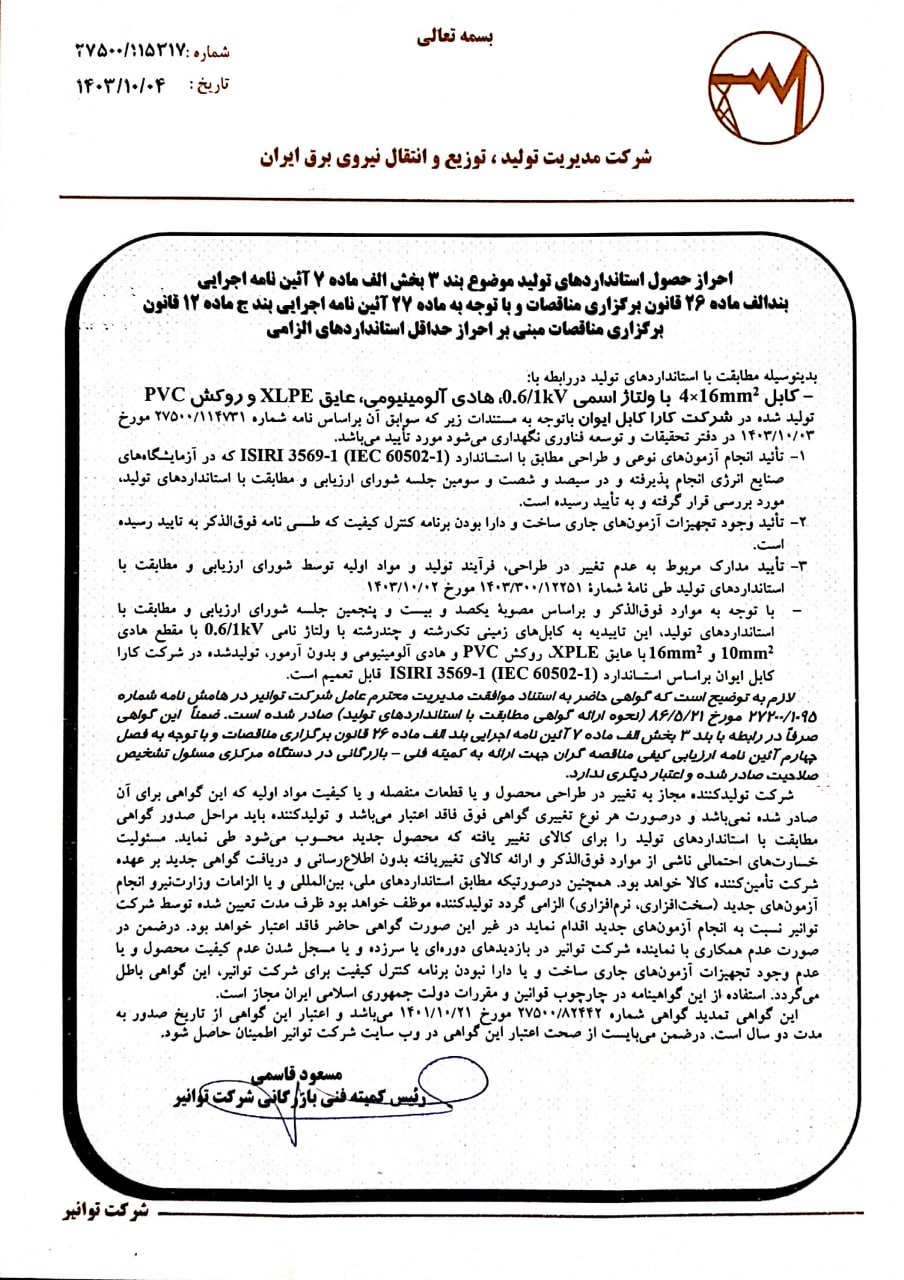 بسمه تعالی
شماره :۲۷۵۰۰/۱۱۵۳۱۷
تاریخ : ۱۴۰۳/۱۰/۰۴
شرکت مدیریت تولید ، توزیع و انتقال نیروی برق ایران
احراز حصول استانداردهای تولید موضوع بند ۳ بخش الف ماده ۷ آئین نامه اجرایی
بندالف ماده ۲۶ قانون برگزاری مناقصات و با توجه به ماده ۲۷ آئین نامه اجرایی بند ج ماده ۱۲ قانون
برگزاری مناقصات مبنی بر احراز حداقل استانداردهای الزامی
بدینوسیله مطابقت با استانداردهای تولید دررابطه با:
- کابل 4×16mm² با ولتاژ اسمی 0.6/1kV، هادی آلومینیومی، عایق XLPE و روکش PVC
تولید شده در شرکت کارا کابل ایوان باتوجه به مستندات زیر که سوابق آن براساس نامه شماره ۲۷۵۰۰/۱۱۴۷۳۱ مورخ
۱۴۰۳/۱۰/۰۳ در دفتر تحقیقات و توسعه فناوری نگهداری می‌شود مورد تأیید می‌باشد.
۱- تأئید انجام آزمون‌های نوعی و طراحی مطابق با استاندارد ISIRI 3569-1 (IEC 60502-1) که در آزمایشگاه‌های
صنایع انرژی انجام پذیرفته و در سیصد و شصت و سومین جلسه شورای ارزیابی و مطابقت با استانداردهای تولید،
مورد بررسی قرار گرفته و به تأیید رسیده است.
۲- تأئید وجود تجهیزات آزمون‌های جاری ساخت و دارا بودن برنامه کنترل کیفیت که طی نامه فوق‌الذکر به تایید رسیده
است.
۳- تأیید مدارک مربوط به عدم تغییر در طراحی، فرآیند تولید و مواد اولیه توسط شورای ارزیابی و مطابقت با
استانداردهای تولید طی نامهٔ شمارهٔ ۱۴۰۳/۳۰۰/۱۲۲۵۱ مورخ ۱۴۰۳/۱۰/۰۲
- با توجه به موارد فوق‌الذکر و براساس مصوبهٔ یکصد و بیست و پنجمین جلسه شورای ارزیابی و مطابقت با
استانداردهای تولید، این تاییدیه به کابل‌های زمینی تک‌رشته و چندرشته با ولتاژ نامی 0.6/1kV با مقطع هادی
10mm² و 16mm² با عایق XPLE، روکش PVC و هادی آلومینیومی و بدون آرمور، تولیدشده در شرکت کارا
کابل ایوان براساس استاندارد ISIRI 3569-1 (IEC 60502-1) قابل تعمیم است.
لازم به توضیح است که گواهی حاضر به استناد موافقت مدیریت محترم عامل شرکت توانیر در هامش نامه شماره
۲۷۲۰۰/۱۰۹۵ مورخ ۸۶/۵/۲۱ (نحوه ارائه گواهی مطابقت با استانداردهای تولید) صادر شده است. ضمناً این گواهی
صرفاً در رابطه با بند ۳ بخش الف ماده ۷ آئین نامه اجرایی بند الف ماده ۲۶ قانون برگزاری مناقصات و با توجه به فصل
چهارم آئین نامه ارزیابی کیفی مناقصه گران جهت ارائه به کمیته فنی - بازرگانی در دستگاه مرکزی مسئول تشخیص
صلاحیت صادر شده و اعتبار دیگری ندارد.
شرکت تولیدکننده مجاز به تغییر در طراحی محصول و یا قطعات منفصله و یا کیفیت مواد اولیه که این گواهی برای آن
صادر شده نمی‌باشد و درصورت هر نوع تغییری گواهی فوق فاقد اعتبار می‌باشد و تولیدکننده باید مراحل صدور گواهی
مطابقت با استانداردهای تولید را برای کالای تغییر یافته که محصول جدید محسوب می‌شود طی نماید. مسئولیت
خسارت‌های احتمالی ناشی از موارد فوق‌الذکر و ارائه کالای تغییریافته بدون اطلاع‌رسانی و دریافت گواهی جدید بر عهده
شرکت تأمین‌کننده کالا خواهد بود. همچنین درصورتیکه مطابق استانداردهای ملی، بین‌المللی و یا الزامات وزارت‌نیرو انجام
آزمون‌های جدید (سخت‌افزاری، نرم‌افزاری) الزامی گردد تولیدکننده موظف خواهد بود ظرف مدت تعیین شده توسط شرکت
توانیر نسبت به انجام آزمون‌های جدید اقدام نماید در غیر این صورت گواهی حاضر فاقد اعتبار خواهد بود. درضمن در
صورت عدم همکاری با نماینده شرکت توانیر در بازدیدهای دوره‌ای یا سرزده و یا مسجل شدن عدم کیفیت محصول و یا
عدم وجود تجهیزات آزمون‌های جاری ساخت و یا دارا نبودن برنامه کنترل کیفیت برای شرکت توانیر، این گواهی باطل
می‌گردد. استفاده از این گواهینامه در چارچوب قوانین و مقررات دولت جمهوری اسلامی ایران مجاز است.
این گواهی تمدید گواهی شماره ۲۷۵۰۰/۸۲۴۴۲ مورخ ۱۴۰۱/۱۰/۲۱ می‌باشد و اعتبار این گواهی از تاریخ صدور به
مدت دو سال است. درضمن می‌بایست از صحت اعتبار این گواهی در وب سایت شرکت توانیر اطمینان حاصل شود.
مسعود قاسمی
رئیس کمیته فنی بازرگانی شرکت توانیر
شرکت توانیر